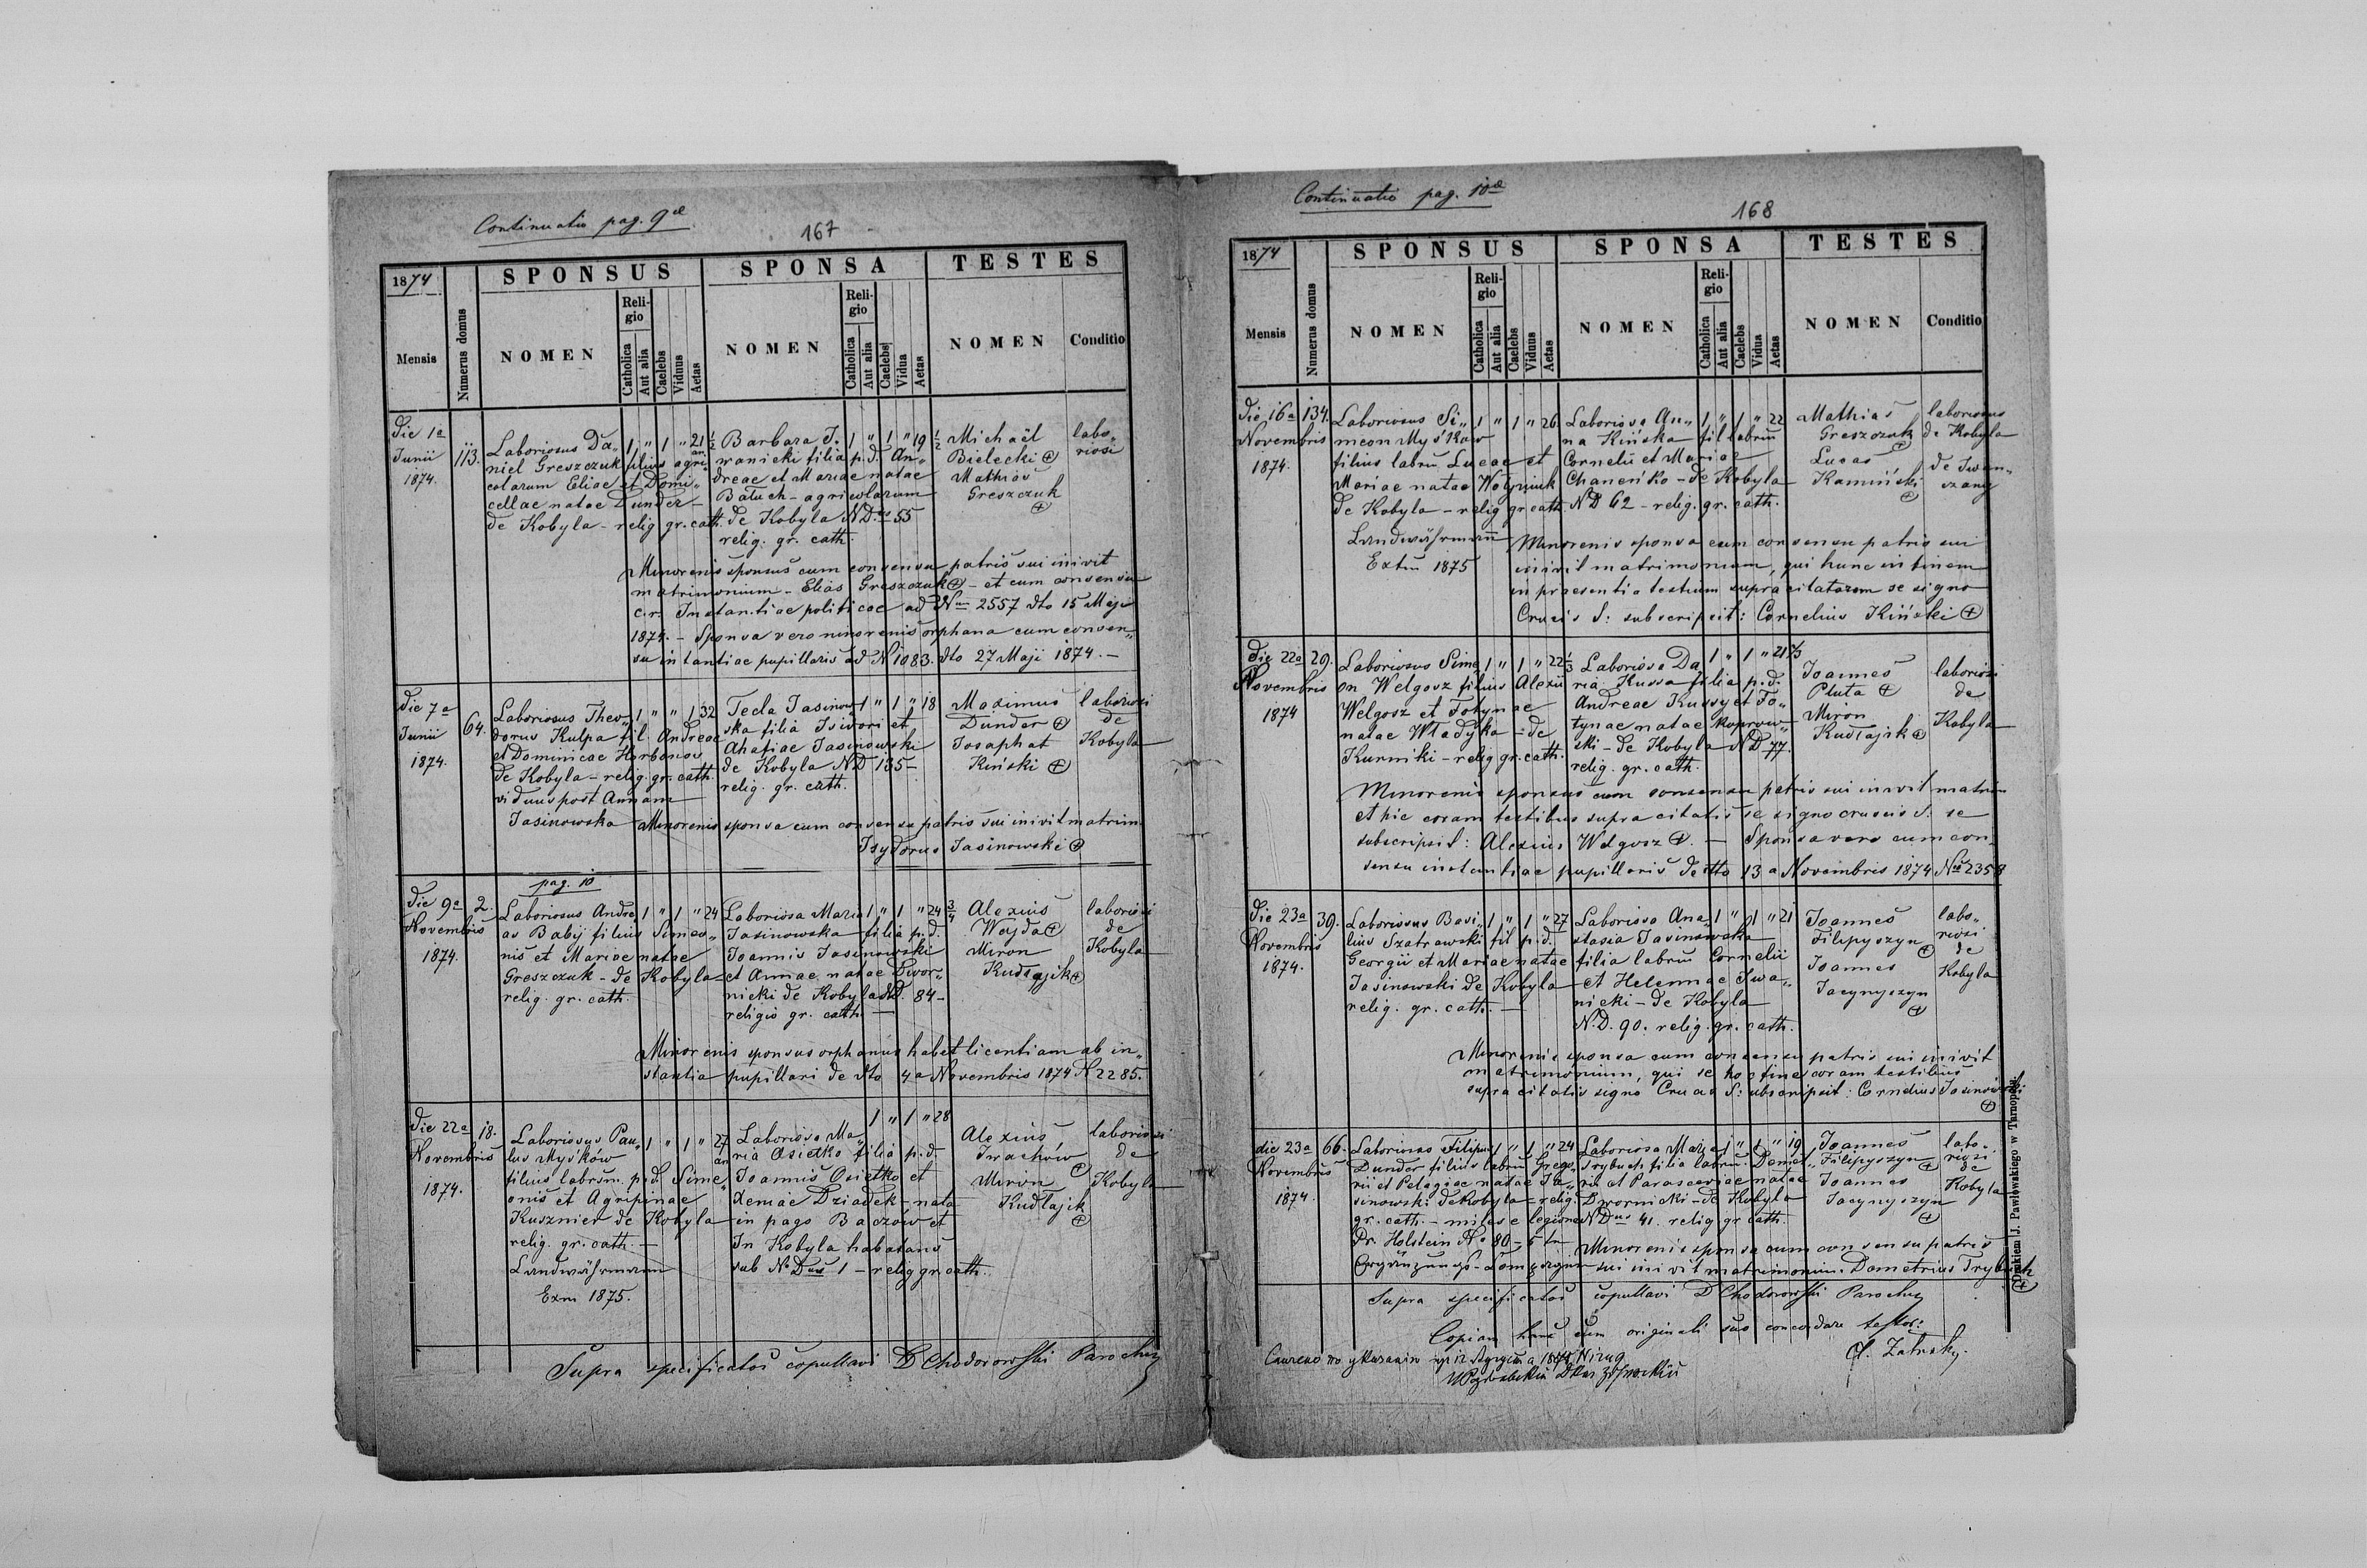 Continuatio pag. 9ae
167
1874
SPONSUS
SPONSA
TESTES
Mensis
Numerus domus
NOMEN
Religio
Catholica
Aut alia
Caelebs
Viduus
Aetas
NOMEN
Religio
Catholica
Aut alia
Caelebs
Vidua
Aetas
NOMEN
Conditio
Die 1a
Junii
1874.
113.
Laboriosus Da„
niel Greszczuk filius agri„
colarum Eliae et Domi„
cellae natae Dunder –
de Kobyla – relig gr. cath.
1 " 1 " 21 1/2
Barbara I.
wanicki filia p.d. An„
dreae et Mariae natae
Batuch – agricolarum
de Kobyla ND. 55
relig. gr. cath.
1 " 1 " 19 1/2
Michaël
Bielecki
Mathias
Greszczuk
labo„
riosi
Minorenis sponsus cum consensu patris sui inivit
matrimonium – Elias Greszczuk – et cum consensu
c.r. Instantiae politicae ad Num 2557 dto 15 Maji
1874. – Sponsa vero minorenis orphana cum consen„
su instantiae pupillaris ad N 1083. dto 27 Maji 1874. –
Die 7a
Junii
1874.
64.
Laboriosus Theo„
dorus Kulpa fil. Andreae
et Dominicae Horbonos
de Kobyla – relig. gr. cath.
viduus post Annam
Jasinowska
1 " " 1 32
Tecla Jasinow„
ska filia Isidori et
Ahafiae Jasinowski
de Kobyla ND 135 –
relig. gr. cath.
1 " 1 " 18
Maximus
Dunder
Josaphat
Kiński
laboriosi
de
Kobyla
Minorenis sponsa cum consensu patris sui inivit matrim.
Isydorus Jasinowski
pag. 10
Die 9a
Novembris
1874.
2.
Laboriosus Andre„
as Babij filius Simeo„
nis et Mariae natae
Greszczuk – de Kobyla
relig. gr. cath.
1 " 1 " 24
Laboriosa Maria
Jasinowska filia p.d.
Joannis Jasinowski
et Annae natae Dwor„
nicki de Kobyla ND. 84 –
religio gr. cath. –
1 " 1 " 24 3/4
Alexius
Wojda
Miron
Kudłajik
laboriosi
de
Kobyla
Minorenis sponsus orphanus habet licentiam ab in„
stantia pupillari de dto 4a Novembris 1874 N 2285.
Die 22a
Novembris
1874.
18.
Laboriosus Pau„
lus Myśków
filius labrsm. p.d. Sime„
onis et Agripinae
Kusznier de Kobyla
relig. gr. cath. –
Landwährmann
Exm 1875.
1 " 1 " 27
Laboriosa Ma„
ria Osietko filia p.d.
Joannis Osietko et
Xeniae Dziadek – nata
in pago Baczów et
In Kobyla habitans
sub N Dus 1 – relig gr. cath.
1 " 1 " 28
Alexius
Iwachów
Miron
Kudłajik
laboriosi
de
Kobyla
Supra specificatos copullavi D Chodorowski Parochus
Continuatio pag. 10ae
168
1874
SPONSUS
SPONSA
TESTES
Mensis
Numerus domus
NOMEN
Religio
Catholica
Aut alia
Caelebs
Viduus
Aetas
NOMEN
Religio
Catholica
Aut alia
Caelebs
Vidua
Aetas
NOMEN
Conditio
Die 16a
Novembris
1874.
134.
Laboriosus Si„
meon Myśków
filius labru. Lucae et
Mariae natae Wołyniuk
de Kobyla – relig gr cath.
Landwährmann
Extm 1875
1 " 1 " 26
Laboriosa An„
na Kińska fil labrum
Cornelii et Mariae
Chaneńko – de Kobyla
ND 62 – relig. gr. cath.
1 " 1 " 22
Mathias
Greszczuk
Lucas
Kamiński
laboriosus
de Kobyla
de Iwan„
czany
Minorenis sponsa cum consensu patris sui
inivit matrimonium, qui hunc in finem
in praesentia testium supra citatorum se signo
Crucis S: subscripsit: Cornelius Kiński
Die 22a
Novembris
1874
29.
Laboriosus Sime„
on Welgosz filius Alexii
Welgosz et Fotynae
natae Władyka – de
Kurniki – relig gr. cath.
1 " 1 " 22 1/3
Laboriosa Da„
ria Kussa filia p.d.
Andreae Kussy et Fo„
tynae natae Koprow„
ski – de Kobyla ND 77.
relig. gr. cath.
1 " 1 " 21 2/3
Joannes
Pluta
Miron
Kudłajik
laboriosi
de
Kobyla
Minorenis sponsus cum consensu patris sui inivit matrim
et hic coram testibus supra citatis se signo crucis S. se
subscripsit: Alexius Welgosz. – Sponsa vero cum con„
sensu instantiae pupillaris de dto 13a Novembris 1874 No 2358
Die 23a
Novembris
1874.
39.
Laboriosus Basi„
lius Szatrawski fil p.d.
Georgii et Mariae natae
Jasinowski de Kobyla
relig. gr. cath. –
1 " 1 " 27
Laboriosa Ana„
stasia Jasinowska
filia labrum Cornelii
et Helennae Iwa„
nicki – de Kobyla
N.D. 90. relig. gr. cath.
1 " 1 " 21
Joannes
Filipyszyn
Joannes
Jacynyszyn
labo„
riosi
de
Kobyla
Minorenis sponsa cum consensu patris sui inivit
matrimonium, qui se hoc fine coram testibus
supra citatis signo Crucis S: subscripsit: Cornelius Jasinowski
die 23a
Novembris
1874.
66.
Laboriosus Filipus
Dunder filius labru Grego„
rii et Pelagiae natae Ja„
sinowski de Kobyla – relig.
gr. cath. – miles e legione
Pr. Holstein No 80 – 5 tn
1 " 1 " 24
Laboriosa Maria
Trybuch filia labrum. Demet„
rii et Parasceviae natae
Dwornicki – de Kobyla
NDus 41. relig gr cath.
1 " 1 " 19
Joannes
Filipyszyn
Joannes
Jacynyszyn
labo„
riosi
de
Kobyla
Minorenis sponsa cum consensu patris
sui inivit matrimonium. Demetrius Trybuch
Supra specificatos copullavi D Chodorowski Parochus
Copiam hanc cum originali suo concordare testor:
Drukiem J. Pawłowskiego w Tarnopolu.